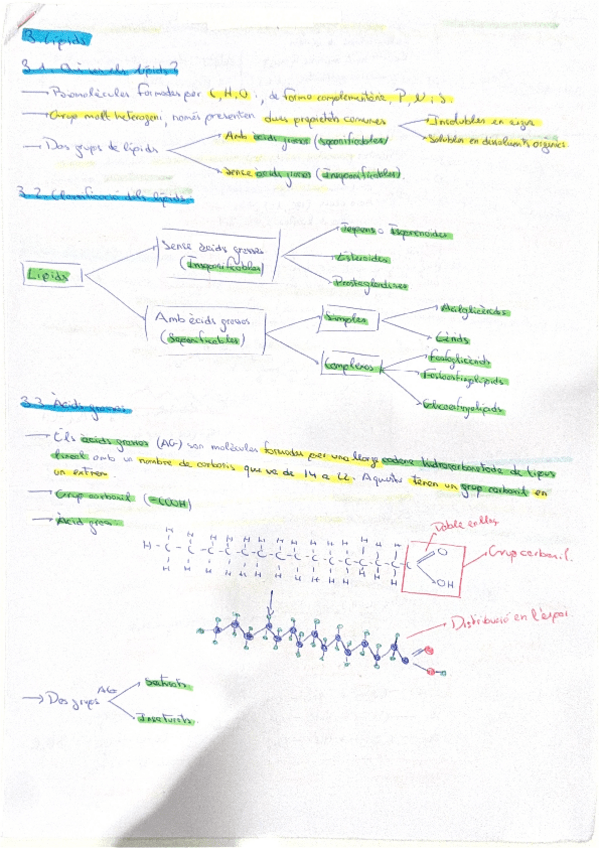 3. Lípids
3.1. Què són els lípids?
→ Biomolècules formades per C, H, O i, de forma complementària, P, N i S.
→ Grup molt heterogeni, només presenten dues propietats comunes
Insolubles en aigua
Solubles en dissolvents orgànics
→ Dos grups de lípids
Amb àcids grassos (saponificables)
Sense àcids grassos (Insaponificables)
3.2. Classificació dels lípids
Lípids
Sense àcids grassos
(Insaponificables)
Terpens o Isoprenoides
Esteroides
Prostaglandines
Amb àcids grassos
(Saponificables)
Simples
Acilglicèrids
Cèrids
Complexos
Fosfoglicèrids
Fosfoesfingolípids
Glicoesfingolípids
3.3. Àcids grassos
→ Els àcids grassos (AG) són molècules formades per una llarga cadena hidrocarbonatada de tipus
lineal amb un nombre de carbonis que va de 14 a 22. Aquests tenen un grup carboxil en
un extrem.
→ Grup carboxil (-COOH)
→ Àcid gras:
Doble enllaç
H H H H H H H H H H H H H
H - C - C - C - C - C - C - C - C - C - C - C - C - C - C
O
OH
H H H H H H H H H H H H H
Grup carboxil.
Distribució en l'espai.
→ Dos grups AG
Saturats
Insaturats